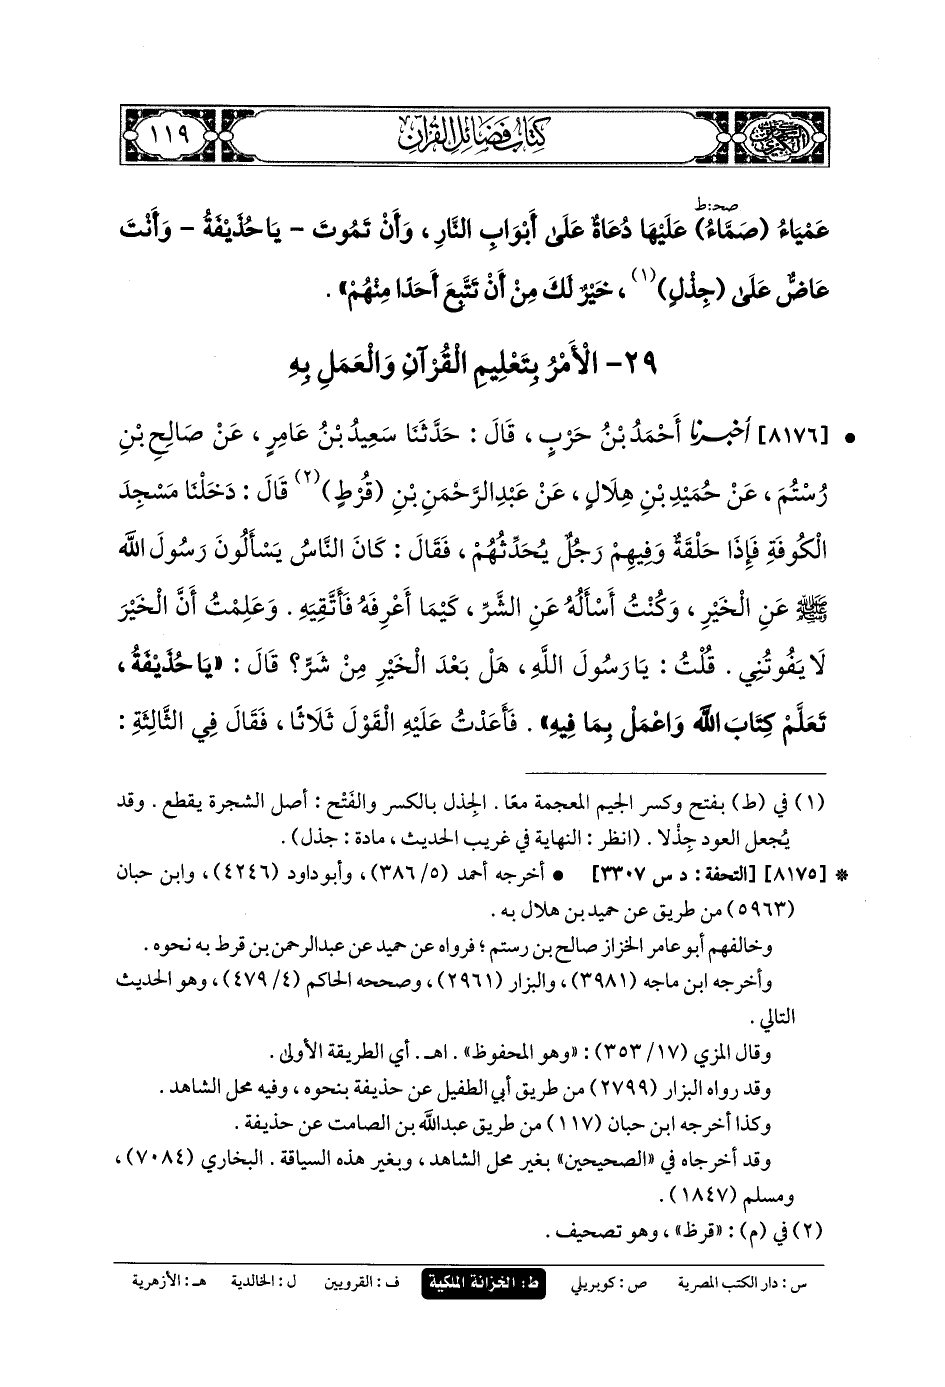 السنن الكبرى
كتاب فضائل القرآن
١١٩
صحـ:ط
عَمْيَاءُ (صَمَّاءُ) عَلَيْهَا دُعَاةٌ عَلَى أَبْوَابِ النَّارِ ، وَأَنْ تَمُوتَ - يَا حُذَيْفَةُ - وَأَنْتَ
عَاضٌّ عَلَى (جِذْلٍ)(١) ، خَيْرٌ لَكَ مِنْ أَنْ تَتَّبِعَ أَحَدًا مِنْهُمْ» .
٢٩- الْأَمْرُ بِتَعْلِيمِ الْقُرْآنِ وَالْعَمَلِ بِهِ
• [٨١٧٦] أخبرنا أَحْمَدُ بْنُ حَرْبٍ ، قَالَ : حَدَّثَنَا سَعِيدُ بْنُ عَامِرٍ ، عَنْ صَالِحِ بْنِ
رُسْتُمَ ، عَنْ حُمَيْدِ بْنِ هِلَالٍ ، عَنْ عَبْدِ الرَّحْمَنِ بْنِ (قُرْطٍ)(٢) قَالَ : دَخَلْنَا مَسْجِدَ
الْكُوفَةِ فَإِذَا حَلْقَةٌ وَفِيهِمْ رَجُلٌ يُحَدِّثُهُمْ ، فَقَالَ : كَانَ النَّاسُ يَسْأَلُونَ رَسُولَ اللَّه
ﷺ عَنِ الْخَيْرِ ، وَكُنْتُ أَسْأَلُهُ عَنِ الشَّرِّ ، كَيْمَا أَعْرِفَهُ فَأَتَّقِيَهِ . وَعَلِمْتُ أَنَّ الْخَيْرَ
لَا يَفُوتُنِي . قُلْتُ : يَا رَسُولَ اللَّهِ ، هَلْ بَعْدَ الْخَيْرِ مِنْ شَرٍّ؟ قَالَ : «يَا حُذَيْفَةُ ،
تَعَلَّمْ كِتَابَ اللَّه وَاعْمَلْ بِمَا فِيهِ» . فَأَعَدْتُ عَلَيْهِ الْقَوْلَ ثَلَاثًا ، فَقَالَ فِي الثَّالِثَةِ :
(١) في (ط) بفتح وكسر الجيم المعجمة معًا . الجِذل بالكسر والفَتْح : أصل الشجرة يقطع . وقد
يُجعل العود جِذْلا . (انظر : النهاية في غريب الحديث ، مادة : جذل) .
* [٨١٧٥] [التحفة : د س ٣٣٠٧] • أخرجه أحمد (٥/ ٣٨٦) ، وأبو داود (٤٢٤٦) ، وابن حبان
(٥٩٦٣) من طريق عن حميد بن هلال به .
وخالفهم أبو عامر الخزاز صالح بن رستم ؛ فرواه عن حميد عن عبدالرحمن بن قرط به نحوه .
وأخرجه ابن ماجه (٣٩٨١) ، والبزار (٢٩٦١) ، وصححه الحاكم (٤/ ٤٧٩) ، وهو الحديث
التالي .
وقال المزي (١٧/ ٣٥٣) : «وهو المحفوظ» . اهـ. أي الطريقة الأولى .
وقد رواه البزار (٢٧٩٩) من طريق أبي الطفيل عن حذيفة بنحوه ، وفيه محل الشاهد .
وكذا أخرجه ابن حبان (١١٧) من طريق عبداللَّه بن الصامت عن حذيفة .
وقد أخرجاه في «الصحيحين» بغير محل الشاهد ، وبغير هذه السياقة . البخاري (٧٠٨٤) ،
ومسلم (١٨٤٧) .
(٢) في (م) : «قرظ» ، وهو تصحيف .
س : دار الكتب المصرية ص : كوبريلي ط : الخزانة الملكية ف : القرويين ل : الخالدية هـ : الأزهرية